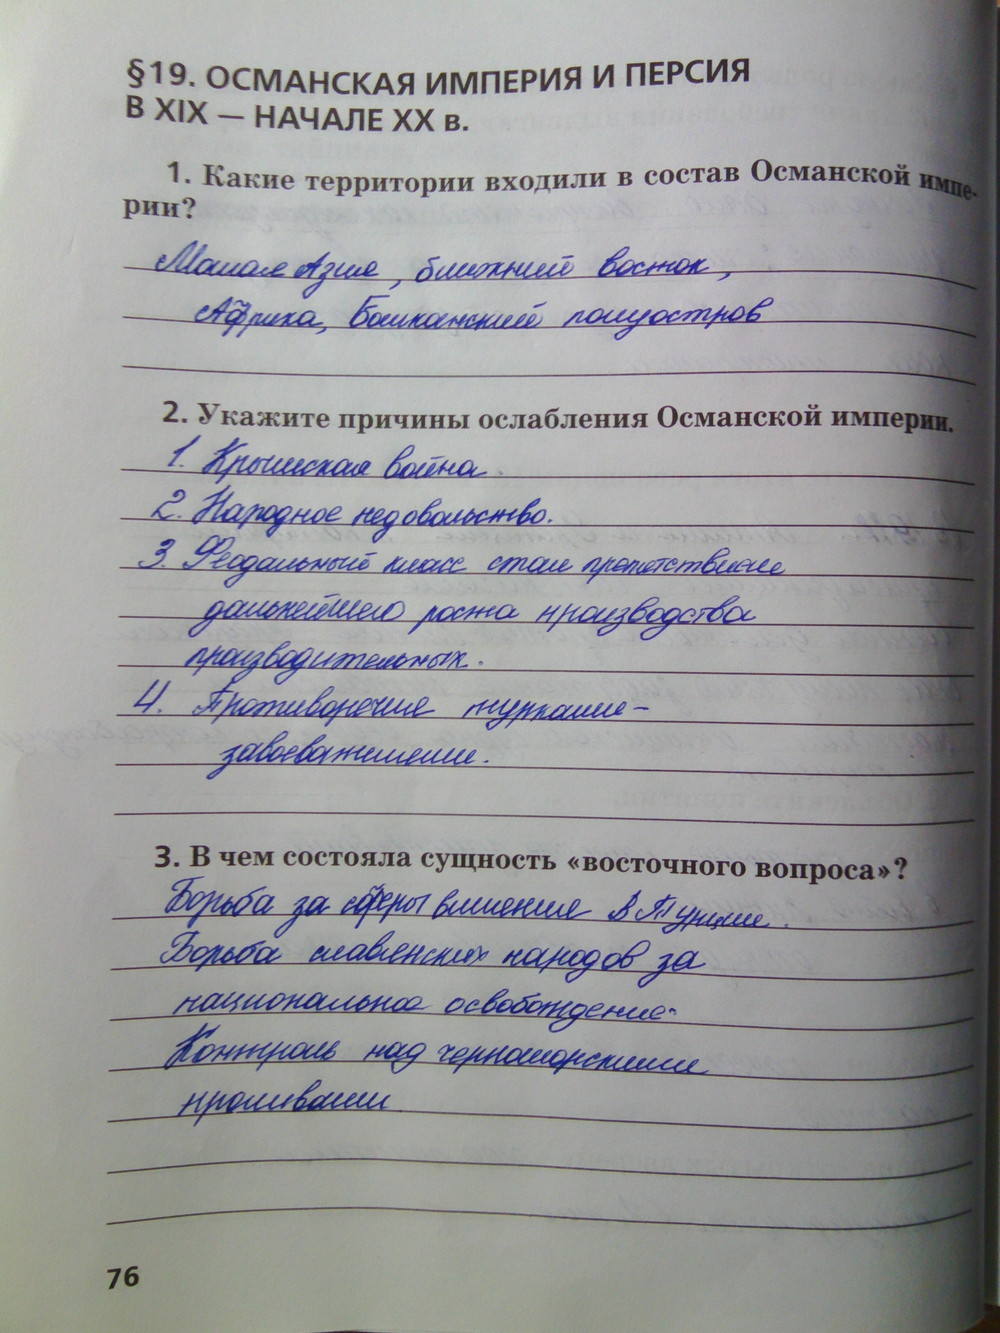 §19. ОСМАНСКАЯ ИМПЕРИЯ И ПЕРСИЯ
В XIX — НАЧАЛЕ XX в.
1. Какие территории входили в состав Османской импе-
рии?
Малая Азия, ближний восток,
Африка, Балканский полуостров
2. Укажите причины ослабления Османской империи.
1. Крымская война
2. Народное недовольство.
3. Феодальный класс стал препятствием
дальнейшего роста производства
производительных.
4. Противоречие турками-
завоевателями.
3. В чем состояла сущность «восточного вопроса»?
Борьба за сферы влияния в Турции.
Борьба славянских народов за
национальное освобождение.
Контроль над черноморскими
проливами
76